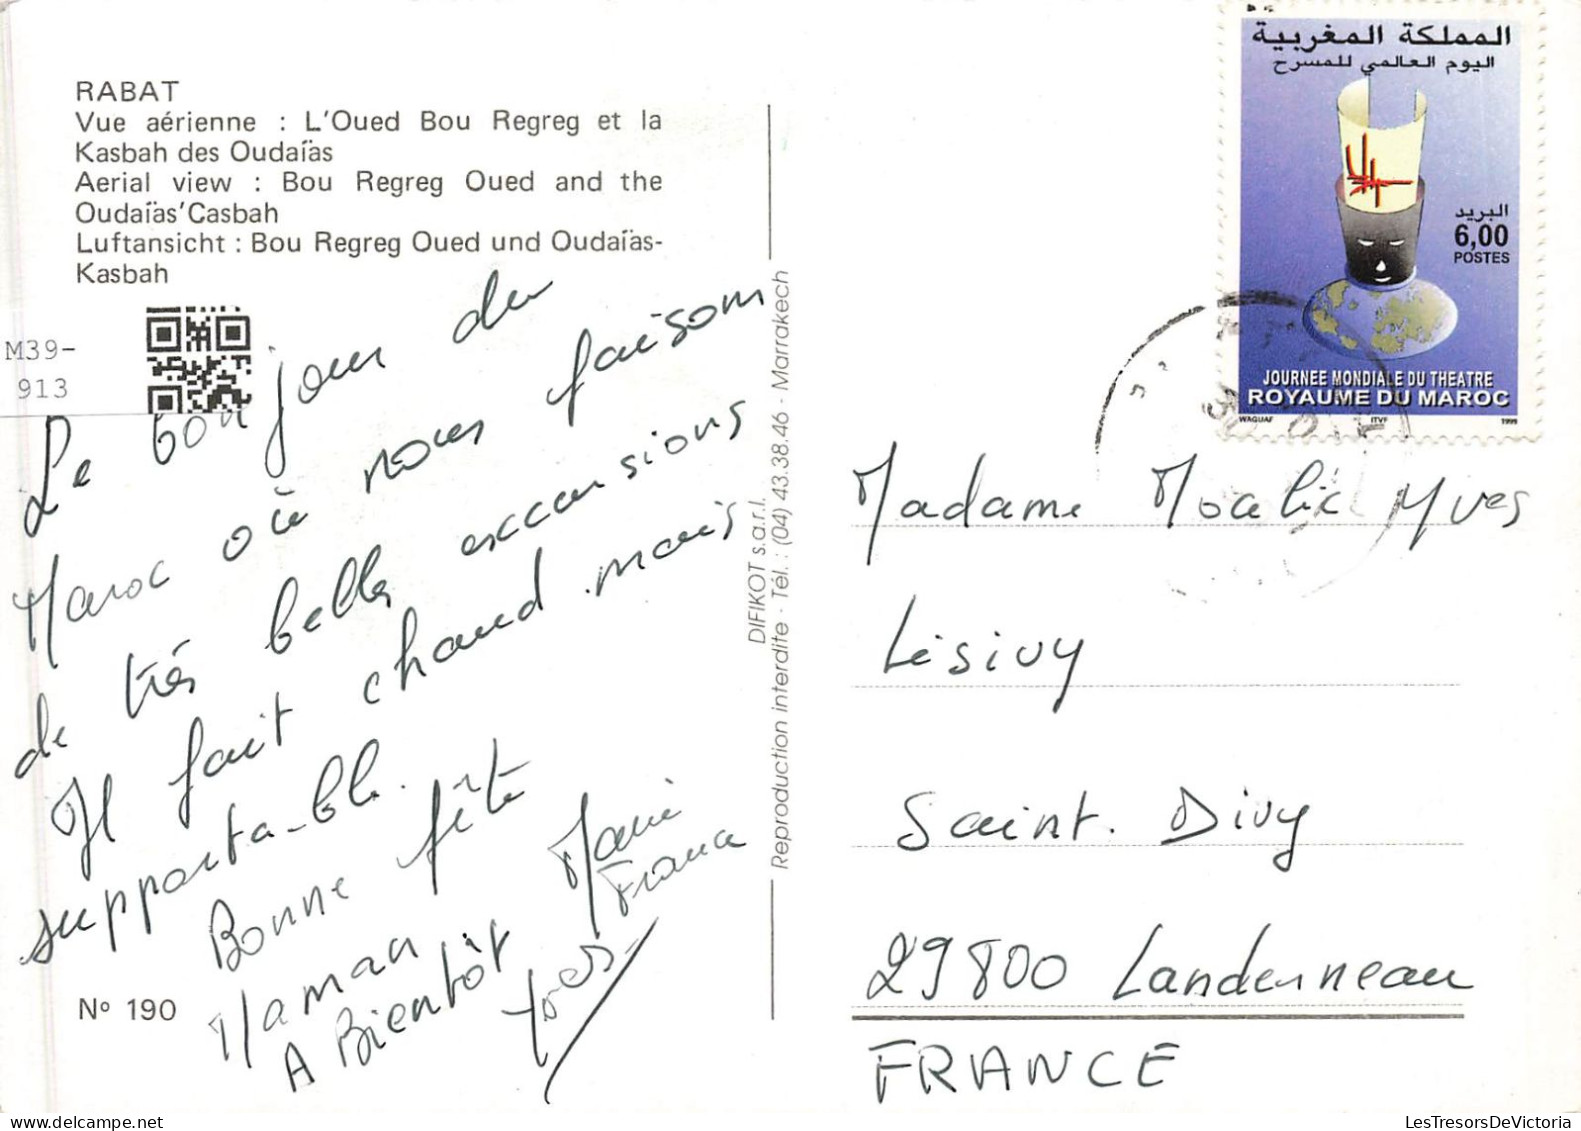 RABAT
Vue aérienne : L'Oued Bou Regreg et la
Kasbah des Oudaïas
Aerial view : Bou Regreg Oued and the
Oudaïas'Casbah
Luftansicht : Bou Regreg Oued und Oudaïas-
Kasbah
M39-
913
Le bonjour du
Maroc où nous faisons
de très belles excursions
Il fait chaud mais
supportable.
Bonne fête
Maman
A Bientôt
Marie
France
Yves
N° 190
DIFIKOT s.a.r.l.
Reproduction interdite - Tél. : (04) 43.38.46 - Marrakech
المملكة المغربية
اليوم العالمي للمسرح
البريد
6,00
POSTES
JOURNEE MONDIALE DU THEATRE
ROYAUME DU MAROC
WAQUAF ITVF 1999
Madame Moalic Yves
Lésivy
Saint. Divy
29800 Landerneau
FRANCE
LesTresorsDeVictoria.com